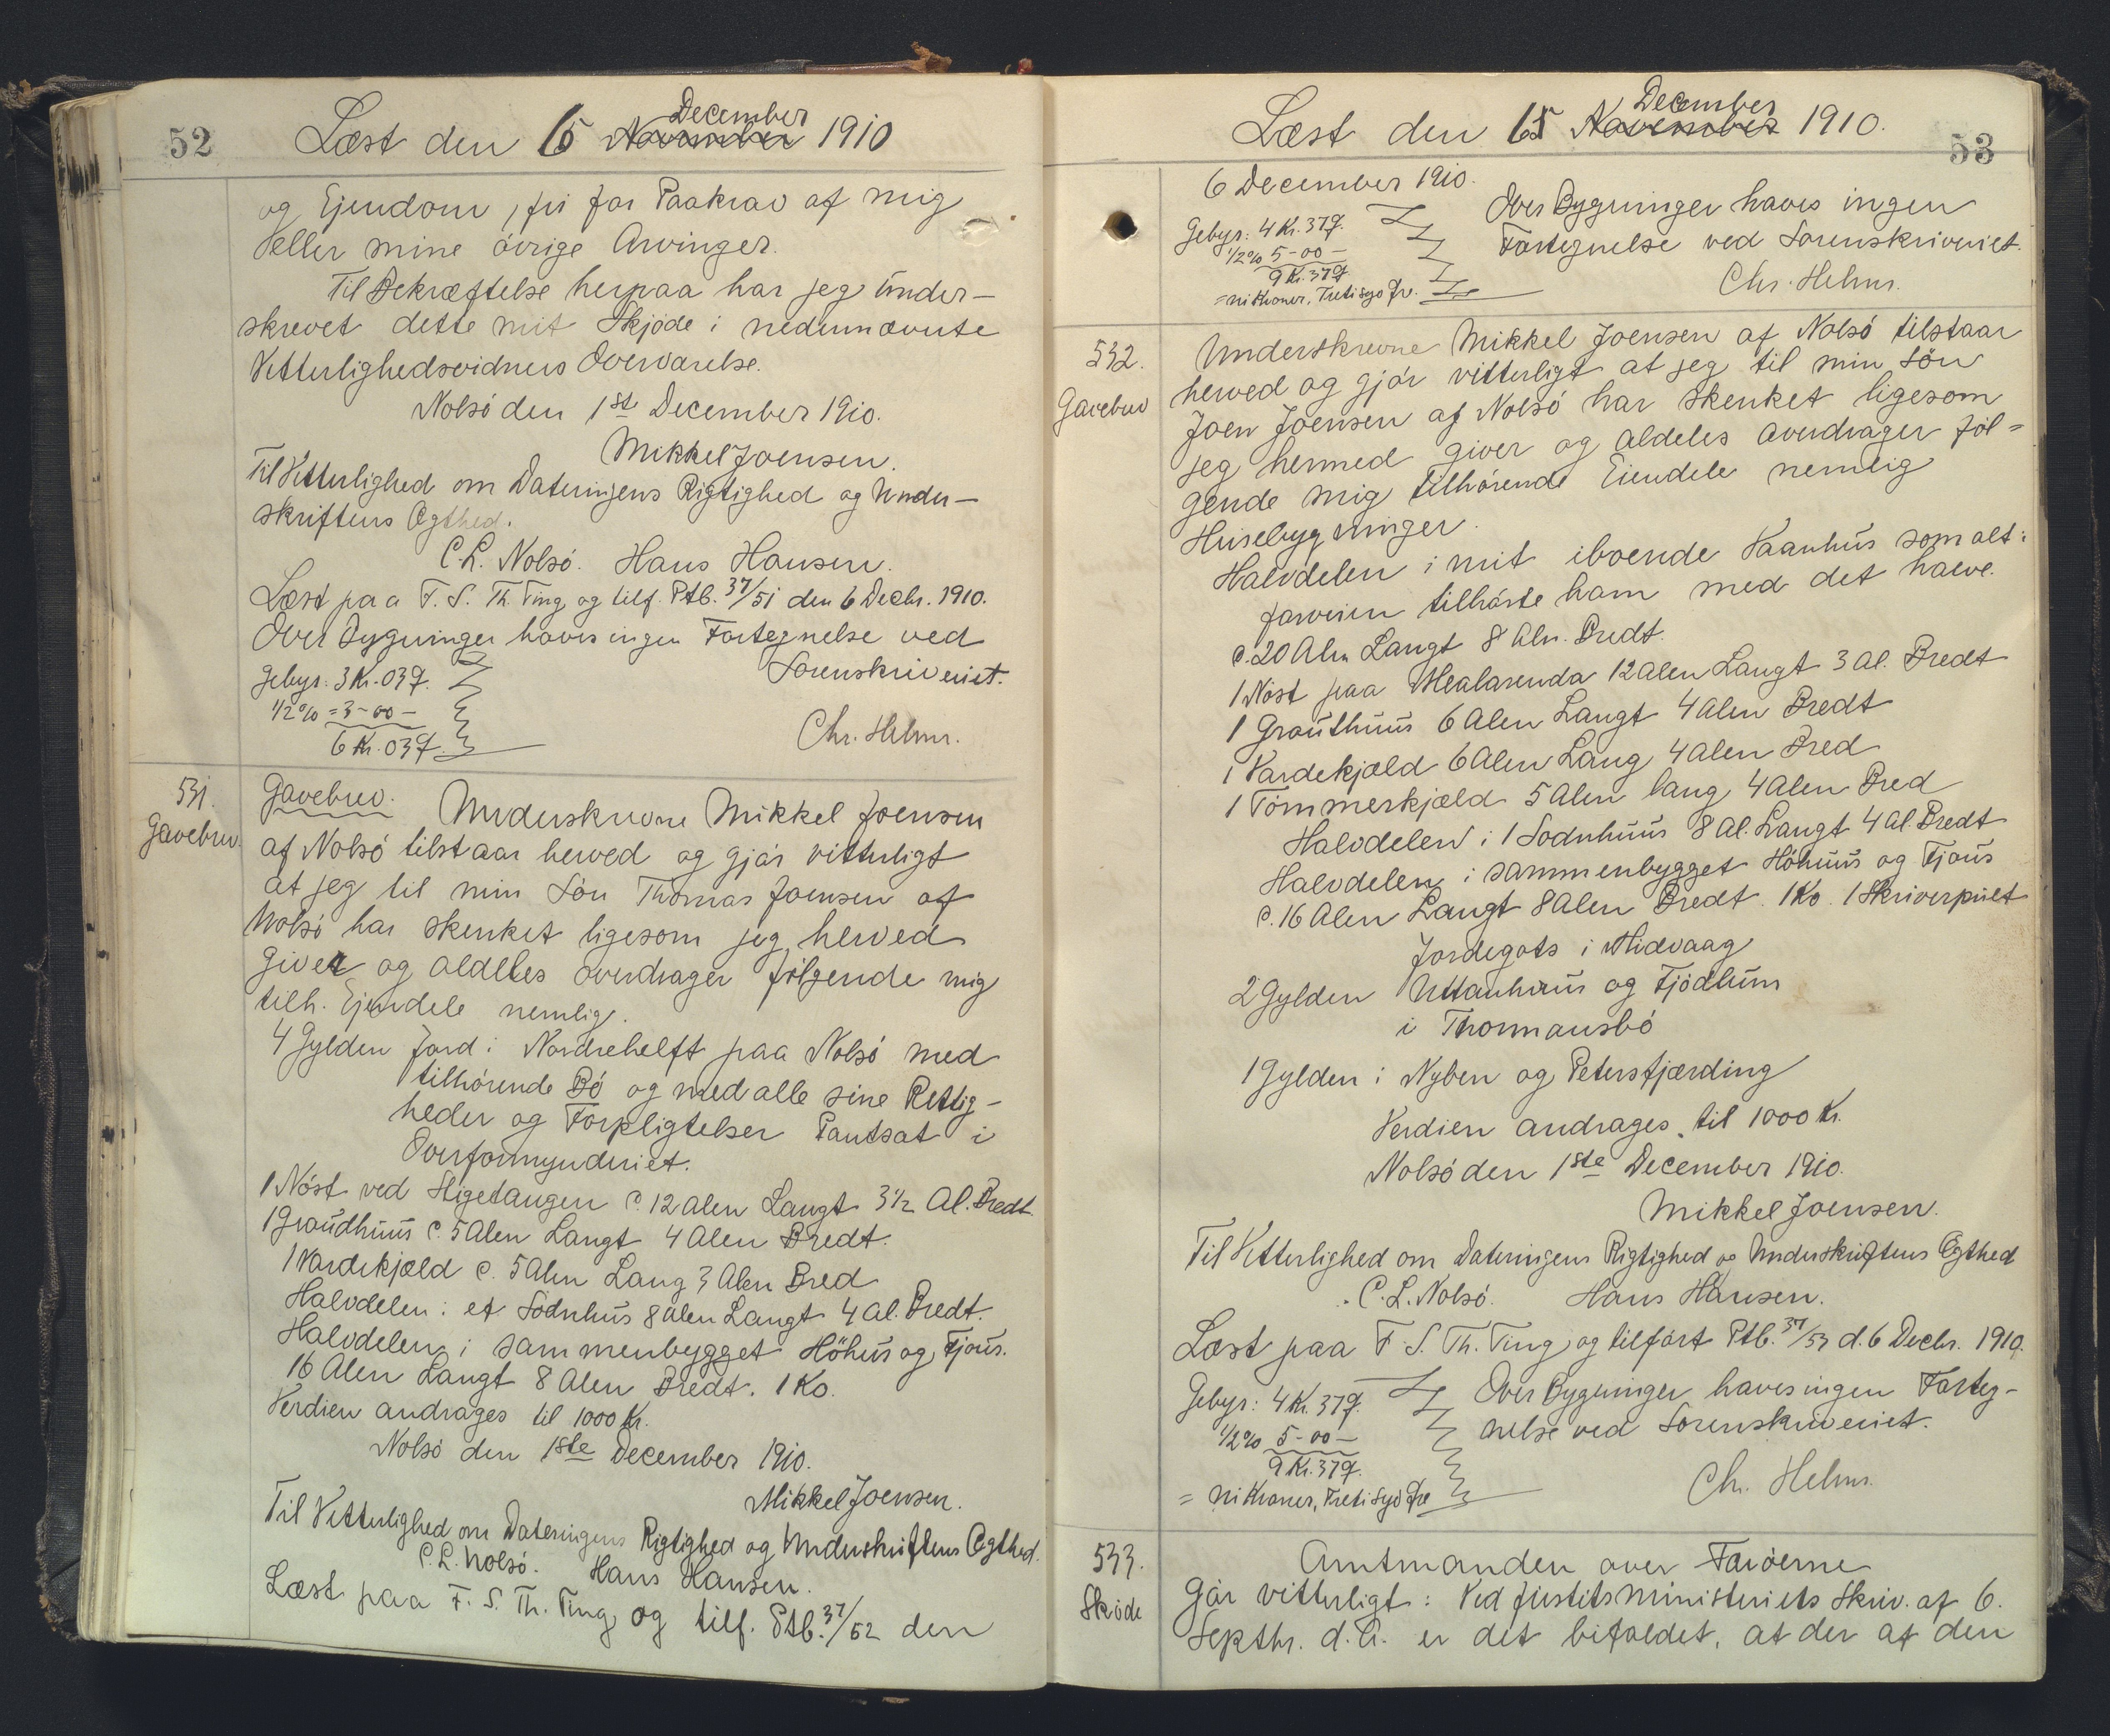 52
Læst den 6 November December 1910
og Ejendom, fri for Paakrav af mig
eller mine övrige Arvinger.
Til Bekræftelse herpaa har jeg under-
skrevet dette mit Skjöde i nedennævnte
Vitterlighedsvidners Overværelse.
Nolsö den 1st December 1910.
Mikkel Joensen.
Til Vitterlighed om Dateringens Rigtighed og Under-
skriftens Ægthed.
C.L. Nolsö. Hans Hansen.
Læst paa F. S. Th. Ting og tilf. Ptb. 37/51 den 6 Decbr. 1910.
Over Bygninger haves ingen Fortegnelse ved
Sorenskriveriet.
Gebyr: 3 Kr. 03 Ø.
1/2% = 3-00-
6 Kr. 03 Ø.
Chr. Helms.
531.
Gavebrev.
Gavebrev. Underskrevne Mikkel Joensen
af Nolsö tilstaar herved og gjör vitterligt
at jeg til min Sön Thomas Joensen af
Nolsö har skenket ligesom jeg herved
giver og aldeles overdrager fölgende mig
tilh. Ejendele nemlig.
4 Gylden Jord i Nordrehelft paa Nolsö med
tilhörende Bö og med alle sine Rettig-
heder og Forpligtelser Pantsat i
Overformynderiet.
1 Nöst ved Stigetangen c. 12 Alen Langt 3 1/2 Al. Bredt.
1 Groudhuus c. 5 Alen Langt 4 Alen Bredt.
1 Vardekjæld c. 5 Alen Lang 3 Alen Bred
Halvdelen i et Sodnhus 8 Alen Langt 4 Al. Bredt.
Halvdelen i sammenbygget Höhus og Fjous.
16 Alen Langt 8 Alen Bredt. 1 Ko.
Verdien andrages til 1000 Kr.
Nolsö den 1ste December 1910.
Mikkel Joensen.
Til Vitterlighed om Dateringens Rigtighed og Underskriftens Ægthed.
C.L. Nolsö. Hans Hansen.
Læst paa F. S. Th. Ting og tilf. Ptb. 37/52 den
53
Læst den 6 November December 1910.
6 December 1910.
Gebyr: 4 Kr. 37 Ø.
1/2% 5-00-
9 Kr. 37 Ø
= ni Kroner, Tretisyv Øre.
Over Bygninger haves ingen
Fortegnelse ved Sorenskriveriet.
Chr. Helms.
532.
Gavebrev
Underskrevne Mikkel Joensen af Nolsö tilstaar
herved og gjör vitterligt at jeg til min Sön
Joen Joensen af Nolsö har skenket ligesom
jeg hermed giver og aldeles overdrager föl-
gende mig tilhörende Eiendele nemlig
Husebygninger.
Halvdelen i mit iboende Vaanhus som alt
forveien tilhörte ham med det halve.
c. 20 Alen Langt 8 Aln. Bredt.
1 Nöst paa Mealarenda 12 Alen Langt 3 Al. Bredt
1 Grouthuus 6 Alen Langt 4 Alen Bredt
1 Vardekjæld 6 Alen Lang 4 Alen Bred
1 Tömmerkjæld 5 Alen lang 4 Alen Bred
Halvdelen i 1 Sodnhuus 8 Al. Langt 4 Al. Bredt
Halvdelen i sammenbygget Höhuus og Fjous
c. 16 Alen Langt 8 Alen Bredt. 1 Ko. 1 Skriverpult
Jordegots i Midvaag
2 Gylden Uttanhuus og Fjödhum
i Thormansbö
1 Gylden i Nyben og Petersfjærding
Verdien andrages til 1000 Kr.
Nolsö den 1ste December 1910.
Mikkel Joensen.
Til Vitterlighed om Dateringens Rigtighed og Underskriftens Ægthed
C.L. Nolsö. Hans Hansen.
Læst paa F. S. Th. Ting og tilfört Ptb. 37/53 d. 6 Decbr. 1910.
Gebyr: 4 Kr. 37 Ø.
1/2% 5-00-
9 Kr. 37 Ø.
= ni Kroner, Tretisyv Øre
Over Bygninger haves ingen Forteg-
nelse ved Sorenskriveriet.
Chr. Helms.
533.
Sköde
Amtmanden over Færöerne
Gör vitterligt: Ved Justitsministeriets Skriv. af 6.
Septbr. d. A. er det bifaldet, at der af den